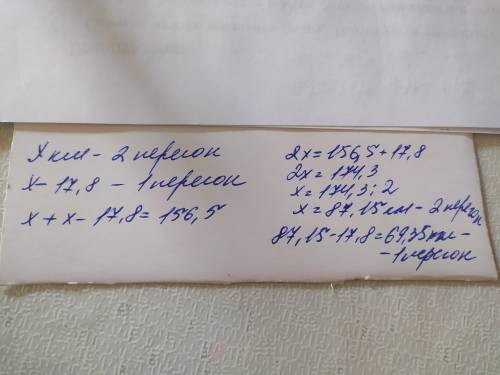 X км - 2 перегон
X - 17,8 - 1 перегон
x + x - 17,8 = 156,5
2x = 156,5 + 17,8
2x = 174,3
x = 174,3 : 2
x = 87,15 км - 2 перегон
87,15 - 17,8 = 69,35 км -
- 1 перегон